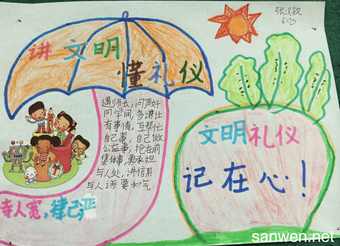 讲文明
懂礼仪
遇师长,问声好
同学间,多谦让
有事情,互帮忙
自己事,自己做
公益事,抢在前
集体事,勇承担
与人处,讲信用
与人语要和气
待人宽,律己严
文明礼仪
记在心!
sanwen.net